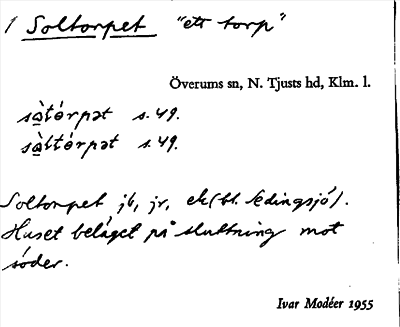 1 Soltorpet "ett torp"
Överums sn, N. Tjusts hd, Klm. l.
sὰ̲tórpət s. 49.
sὰ̲ltórpət s. 49.
Soltorpet jb, jr, ek (bl. Edingsjö).
Huset beläget på sluttning mot
söder.
Ivar Modéer 1955